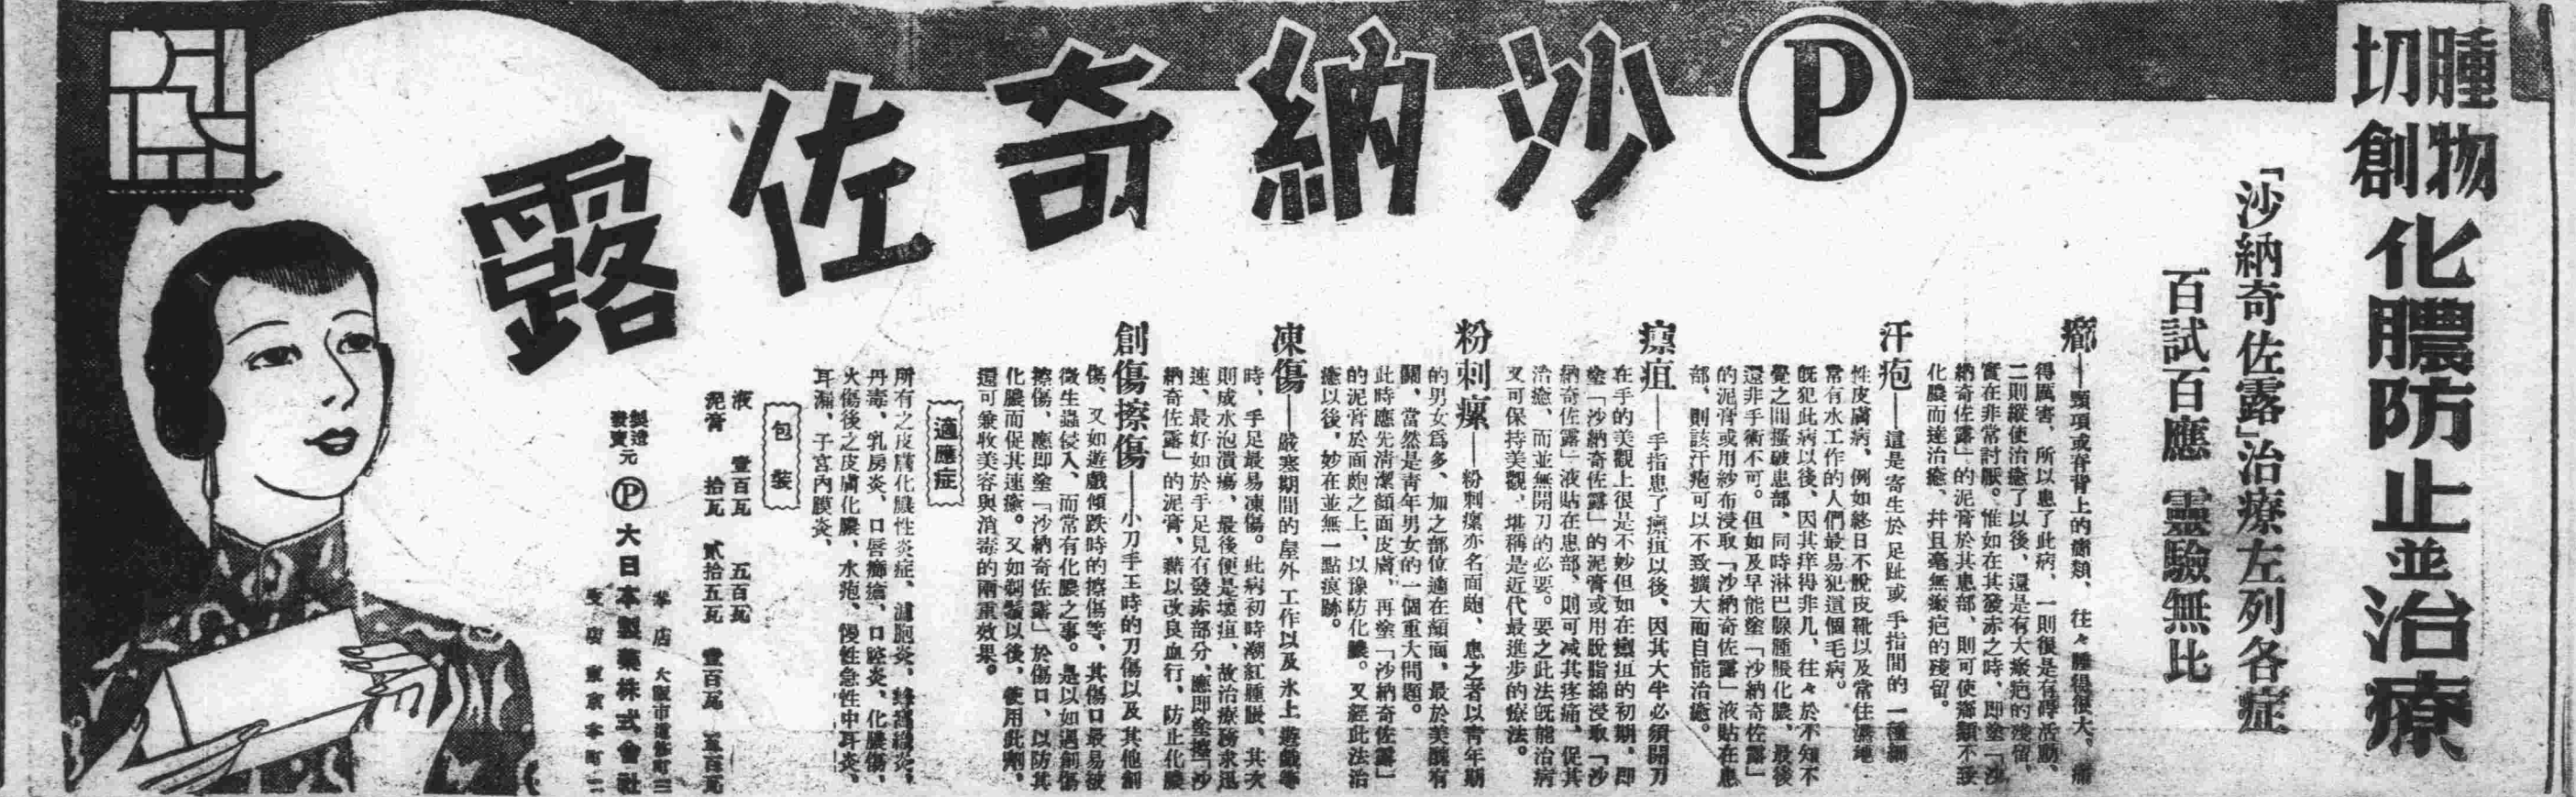 腫物
切創
化膿防止並治療
「沙納奇佐露」治療左列各症
百試百應 靈驗無比
P
沙納奇佐露
癤——頸項或脊背上的癤類、往々腫得很大、痛
得厲害、所以患了此病、一則很是有碍活動、
二則縱使治癒了以後、還是有大瘢疤的殘留、
實在非常討厭。惟如在其發赤之時、即塗「沙
納奇佐露」的泥膏於其患部、則可使癤類不致
化膿而達治癒、并且毫無瘢疤的殘留。
汗疱——這是寄生於足趾或手指間的一種細
性皮膚病、例如終日不脫皮靴以及常住濕地
常有水工作的人們最易犯這個毛病。
既犯此病以後、因其痒得非凡、往々於不知不
覺之間搔破患部、同時淋巴腺腫脹化膿、最後
還非手術不可。但如及早能塗「沙納奇佐露」
的泥膏或用紗布浸取「沙納奇佐露」液貼在患
部、則該汗疱可以不致擴大而自能治癒。
瘭疽——手指患了瘭疽以後、因其大半必須開刀
在手的美觀上很是不妙但如在瘭疽的初期、即
塗「沙納奇佐露」的泥膏或用脫脂綿浸取「沙
納奇佐露」液貼在患部、則可減其疼痛、促其
治癒、而並無開刀的必要。要之此法既能治病
又可保持美觀、堪稱是近代最進步的療法。
粉刺瘰——粉刺瘰亦名面皰、患之者以青年期
的男女爲多、加之部位適在顏面、最於美醜有
關、當然是青年男女的一個重大問題。
此時應先清潔顏面皮膚、再塗「沙納奇佐露」
的泥膏於面皰之上、以豫防化膿。又經此法治
癒以後、妙在並無一點痕跡。
凍傷——嚴寒期間的屋外工作以及氷上遊戲等
時、手足最易凍傷。此病初時潮紅腫脹、其次
則成水泡潰瘍、最後便是壞疽、故治療務求迅
速、最好如於手足見有發赤部分、應即塗擦「沙
納奇佐露」的泥膏、藉以改良血行、防止化膿
創傷擦傷——小刀手工時的刀傷以及其他創
傷、又如遊戲傾跌時的擦傷等、其傷口最易被
微生蟲侵入、而常有化膿之事。是以如遇創傷
擦傷、應即塗「沙納奇佐露」於傷口、以防其
化膿而促其速癒。又如剃鬚以後、使用此劑、
還可兼收美容與消毒的兩重效果。
適應症
所有之皮膚化膿性炎症、濾胞炎、蜂窩織炎、
丹毒、乳房炎、口唇癤瘡、口腔炎、化膿傷、
火傷後之皮膚化膿、水疱、慢性急性中耳炎、
耳漏、子宮內膜炎、
包裝
液 壹百瓦 五百瓦
泥膏 拾瓦 貳拾五瓦 壹百瓦 五百瓦
製造
發賣元
P 大日本製藥株式會社
本店 大阪市道修町三
支店 東京本町二